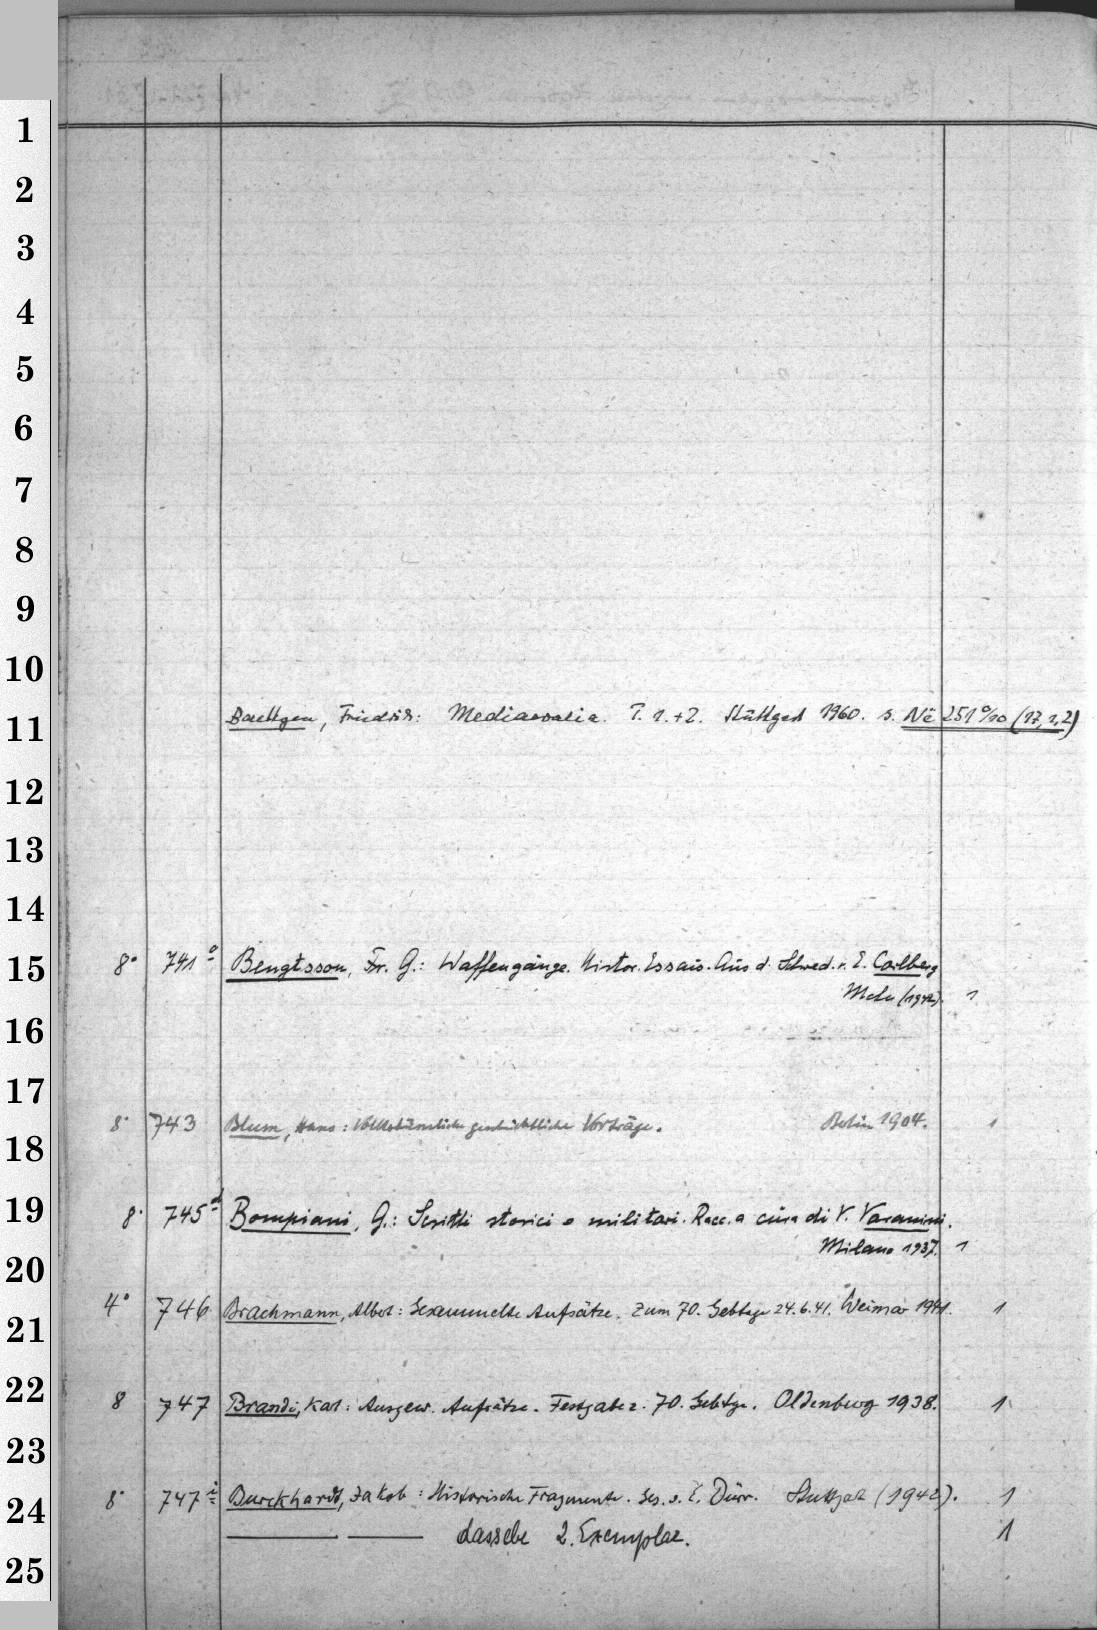 1
2
3
4
5
6
7
8
9
10
11
Baethgen, Friedrich: Mediaevalia. T. 1.+2. Stuttgart 1960. s. Nē 251 %10 (17,1,2)
12
13
14
15
8° 741 e Bengtsson, Fr. G.: Waffengänge. Histor. Essais. Aus d. Schwed. v. E. Carlberg
Mchn (1942). 1
16
17
8° 743 Blum, Hans: Volkstümliche geschichtliche Vorträge. Berlin 1904. 1
18
19
8° 745 d Bompiani, G.: Scritti storici e militari. Racc. a cura di V. Varanini.
Milano 1937. 1
20
4° 746 Brachmann, Albert: Gesammelte Aufsätze. Zum 70. Gebtage 24.6.41. Weimar 1941. 1
21
22
8 747 Brandi, Karl: Ausgew. Aufsätze. Festgabe z. 70. Gebtge. Oldenburg 1938. 1
23
8° 747 i Burckhardt, Jakob: Historische Fragmente. Ges. v. E. Dürr. Stuttgart (1942). 1
24
dasselbe 2. Exemplar. 1
25